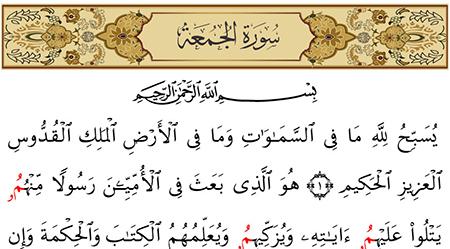 سُورَةُ الجُمُعَةِ
بِسْمِ ٱللَّهِ ٱلرَّحْمَٰنِ ٱلرَّحِيمِ
يُسَبِّحُ لِلَّهِ مَا فِى ٱلسَّمَٰوَٰتِ وَمَا فِى ٱلْأَرْضِ ٱلْمَلِكِ ٱلْقُدُّوسِ
ٱلْعَزِيزِ ٱلْحَكِيمِ ﴿١﴾ هُوَ ٱلَّذِى بَعَثَ فِى ٱلْأُمِّيِّـۧنَ رَسُولًا مِّنْهُمُۥ
يَتْلُوا۟ عَلَيْهِمُۥ ءَايَٰتِهِۦ وَيُزَكِّيهِمُۥ وَيُعَلِّمُهُمُ ٱلْكِتَٰبَ وَٱلْحِكْمَةَ وَإِن